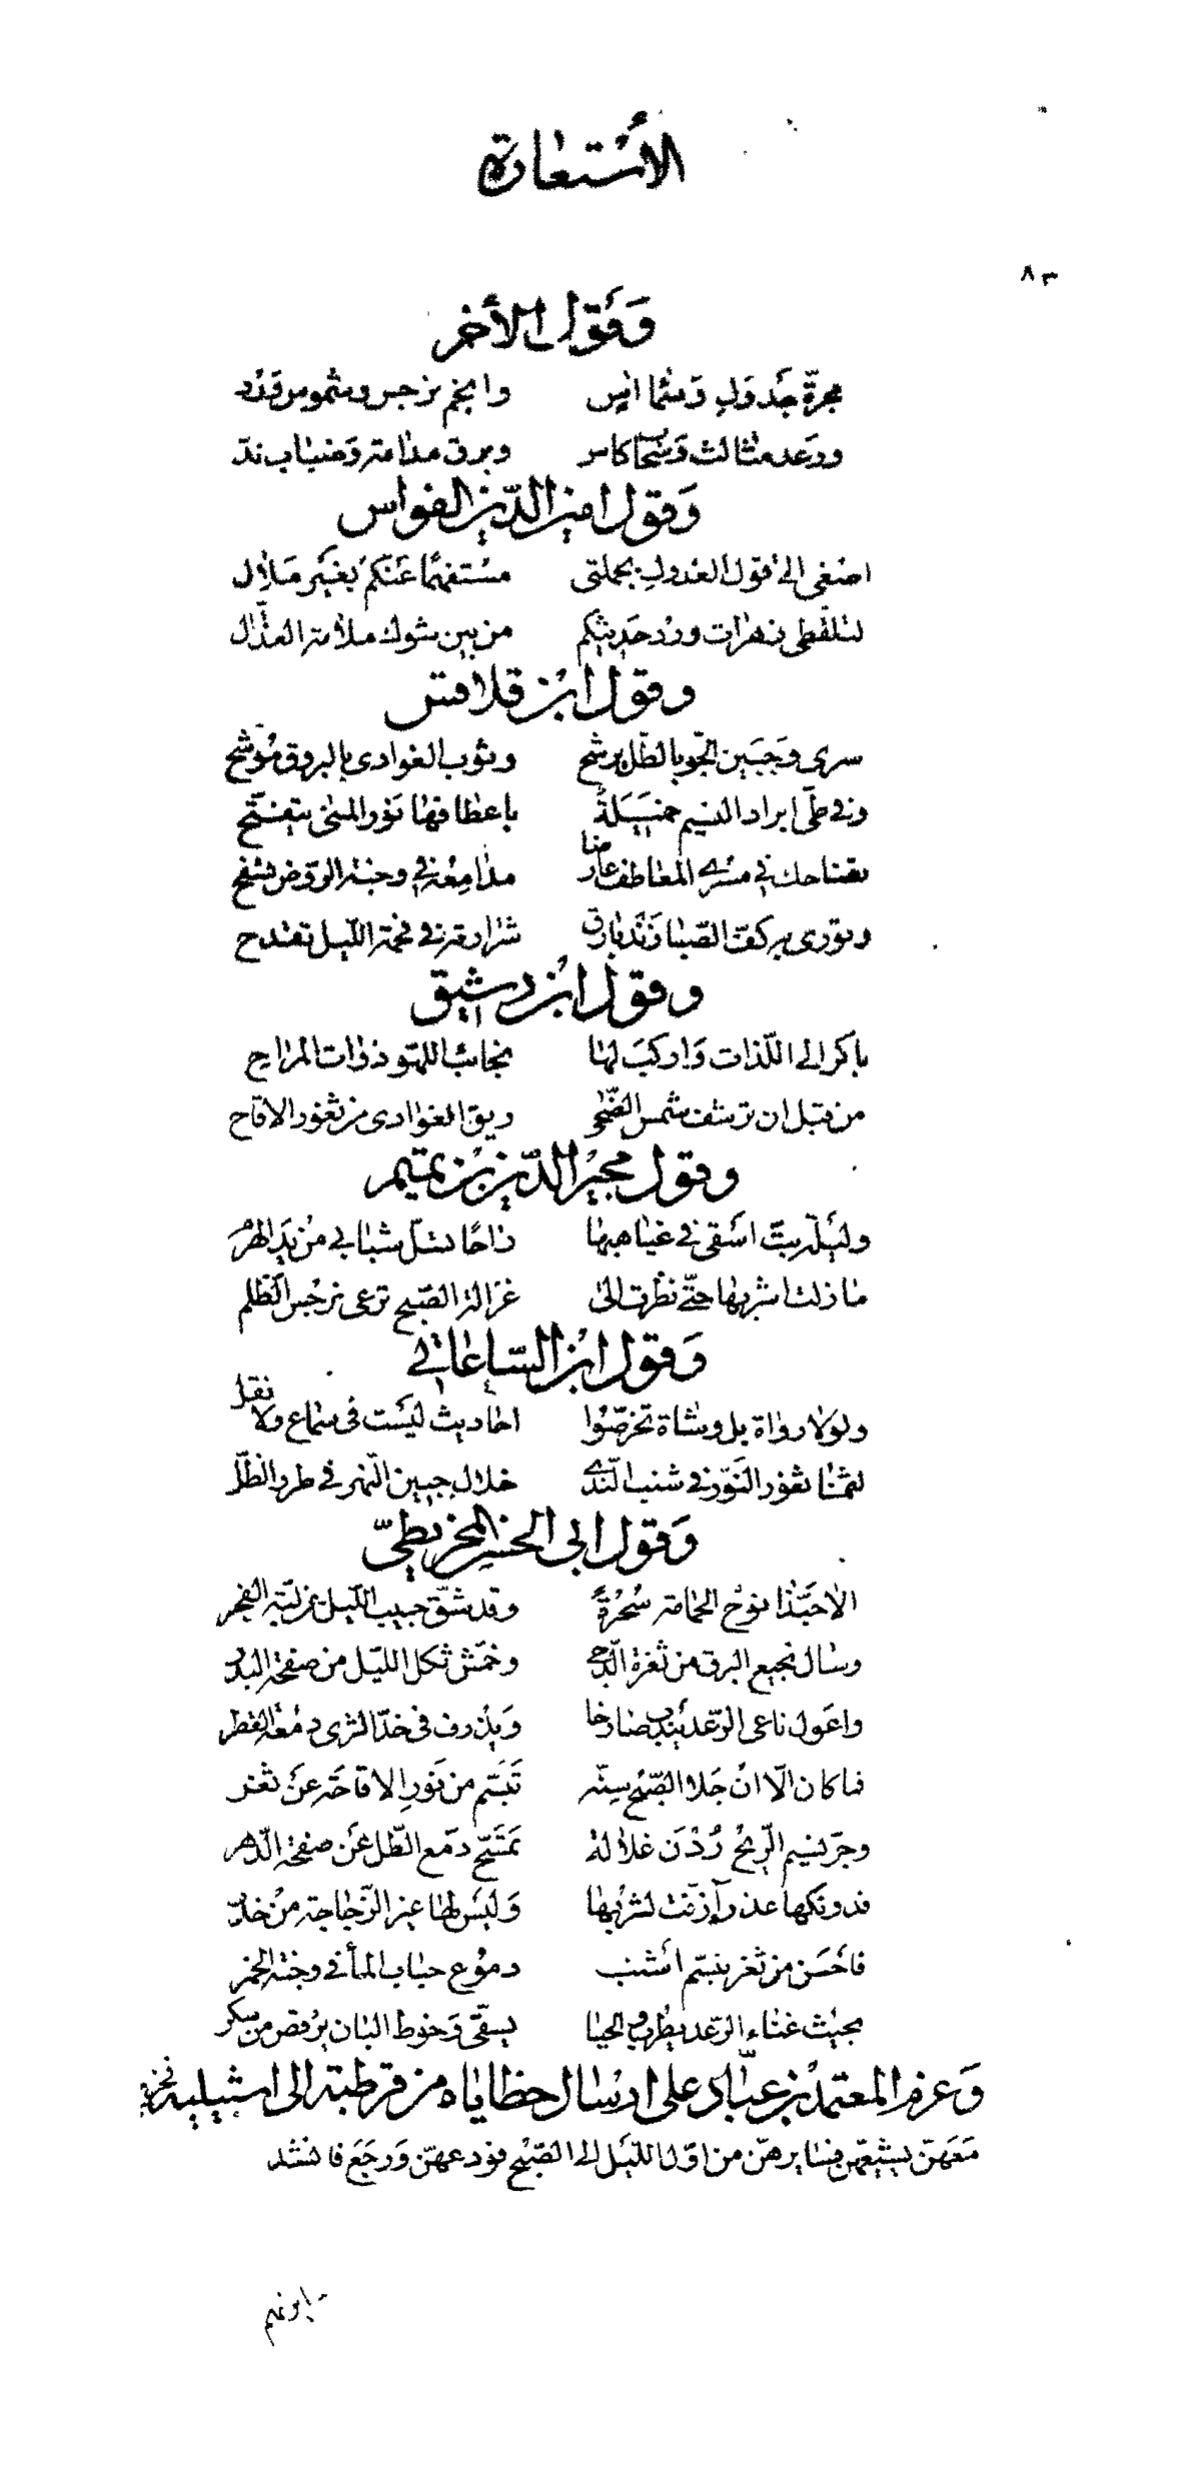 الأستعارة
٨٣
وقول الأخر
مجرّة جَدول وسَمَا اٰس وانجم نرجس وشموس وَرْد
ورَعد مثالث وسحاب كاس وبرق مدامة وضباب ندّ
وَقول امين الدّين القواس
اصغى الى قول العذول بجملتى مستفهمًا عَنكم بغَير مَلال
لتلقطى زهرات ورد حَديثكم من بين شوك ملامة العذّال
وقول ابن قلاقس
سرى وجَبَين الجّو بالطّل يرشح وثوب الغوادى بالبروق مُوشّح
وفى طىّ ابراد النسيم خميَلة باعطافها نَور المنى يتفتّح
تضاحك في مسرى المعاطف عارضا مدامعه فى وجنة الروض تسفح
وتورى به كفّ الصّبا زَند بارق شرارته فى فحمة اللّيل تقدح
وقول ابن رشيق
باكر الى اللّذات وَاركبَ لها نجائب اللهو ذوات المراح
من قبل ان ترشف شمس الضّحى ريق الغوادى من ثغور الاقاح
وقول مجير الدّين بن تميم
وليلة بتّ اسقى فى غياهبها راحًا تسلّ شبابى من يَد الهرم
ما زلت اشربها حتّى نظرت الى غزالة الصّبح ترعى نرجس الظّلم
وَقول ابن السّاعاتى
ولولا رواة بل وشاة تخرصّوا احاديث ليَست فى سماع ولا نقل
لثمنا ثغور النَوّر فى شنب النّدى خلال جبين النّهر فى طرر الظلّ
وَقول ابى الحسن المخريطىّ
الا حَبّذا نوحْ الحمامة سُحْرةً وقد شقّ جيب اللّيل عن لبّة الفجر
وسال نجيع البرق من ثغرة الدّجى وخمّش ثكل اللّيل من صفحة البدر
واعول ناعى الرّعد يندب صارخا وَيذرف فى خدّ الثرى دمعَة القطر
فما كان الّا انْ جَلا الصّبْح سنّه تَبَسّم من نَورِ الاقاحَة عنَ ثغر
وجرّ نسيم الرّيحْ رُدْنَ غلالة تمسّح دمَع الطّل عَن صفحة الدّهر
فدونكها عذرآء زفّت لشربها وَليَس لها غير الزّجاجة مِنْ خدر
فاحَسَن من ثغر تبسّم اشنب دموُع حباب المأ فى وجنة الخمر
بحيث غناء الرّعد يطرب والحيا يسقّى وَخوط البان يرْقص من سكر
وَعزم المعتمد بن عبّاد على ارسال حظاياه من قرطبة الى اشبيلية فخرج
مَعَهَنّ يشيّعهّن فسَايرهنّ من اوّل اللّيَل الى الصّبْح فودعهّن وَرجَعَ فانشد